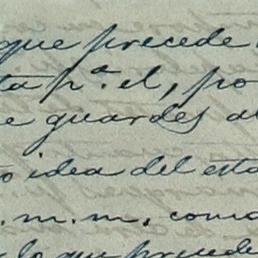 que precede
ta p.ª el, po
e guardes a
o idea del esta
. m. m, como
lo que precede